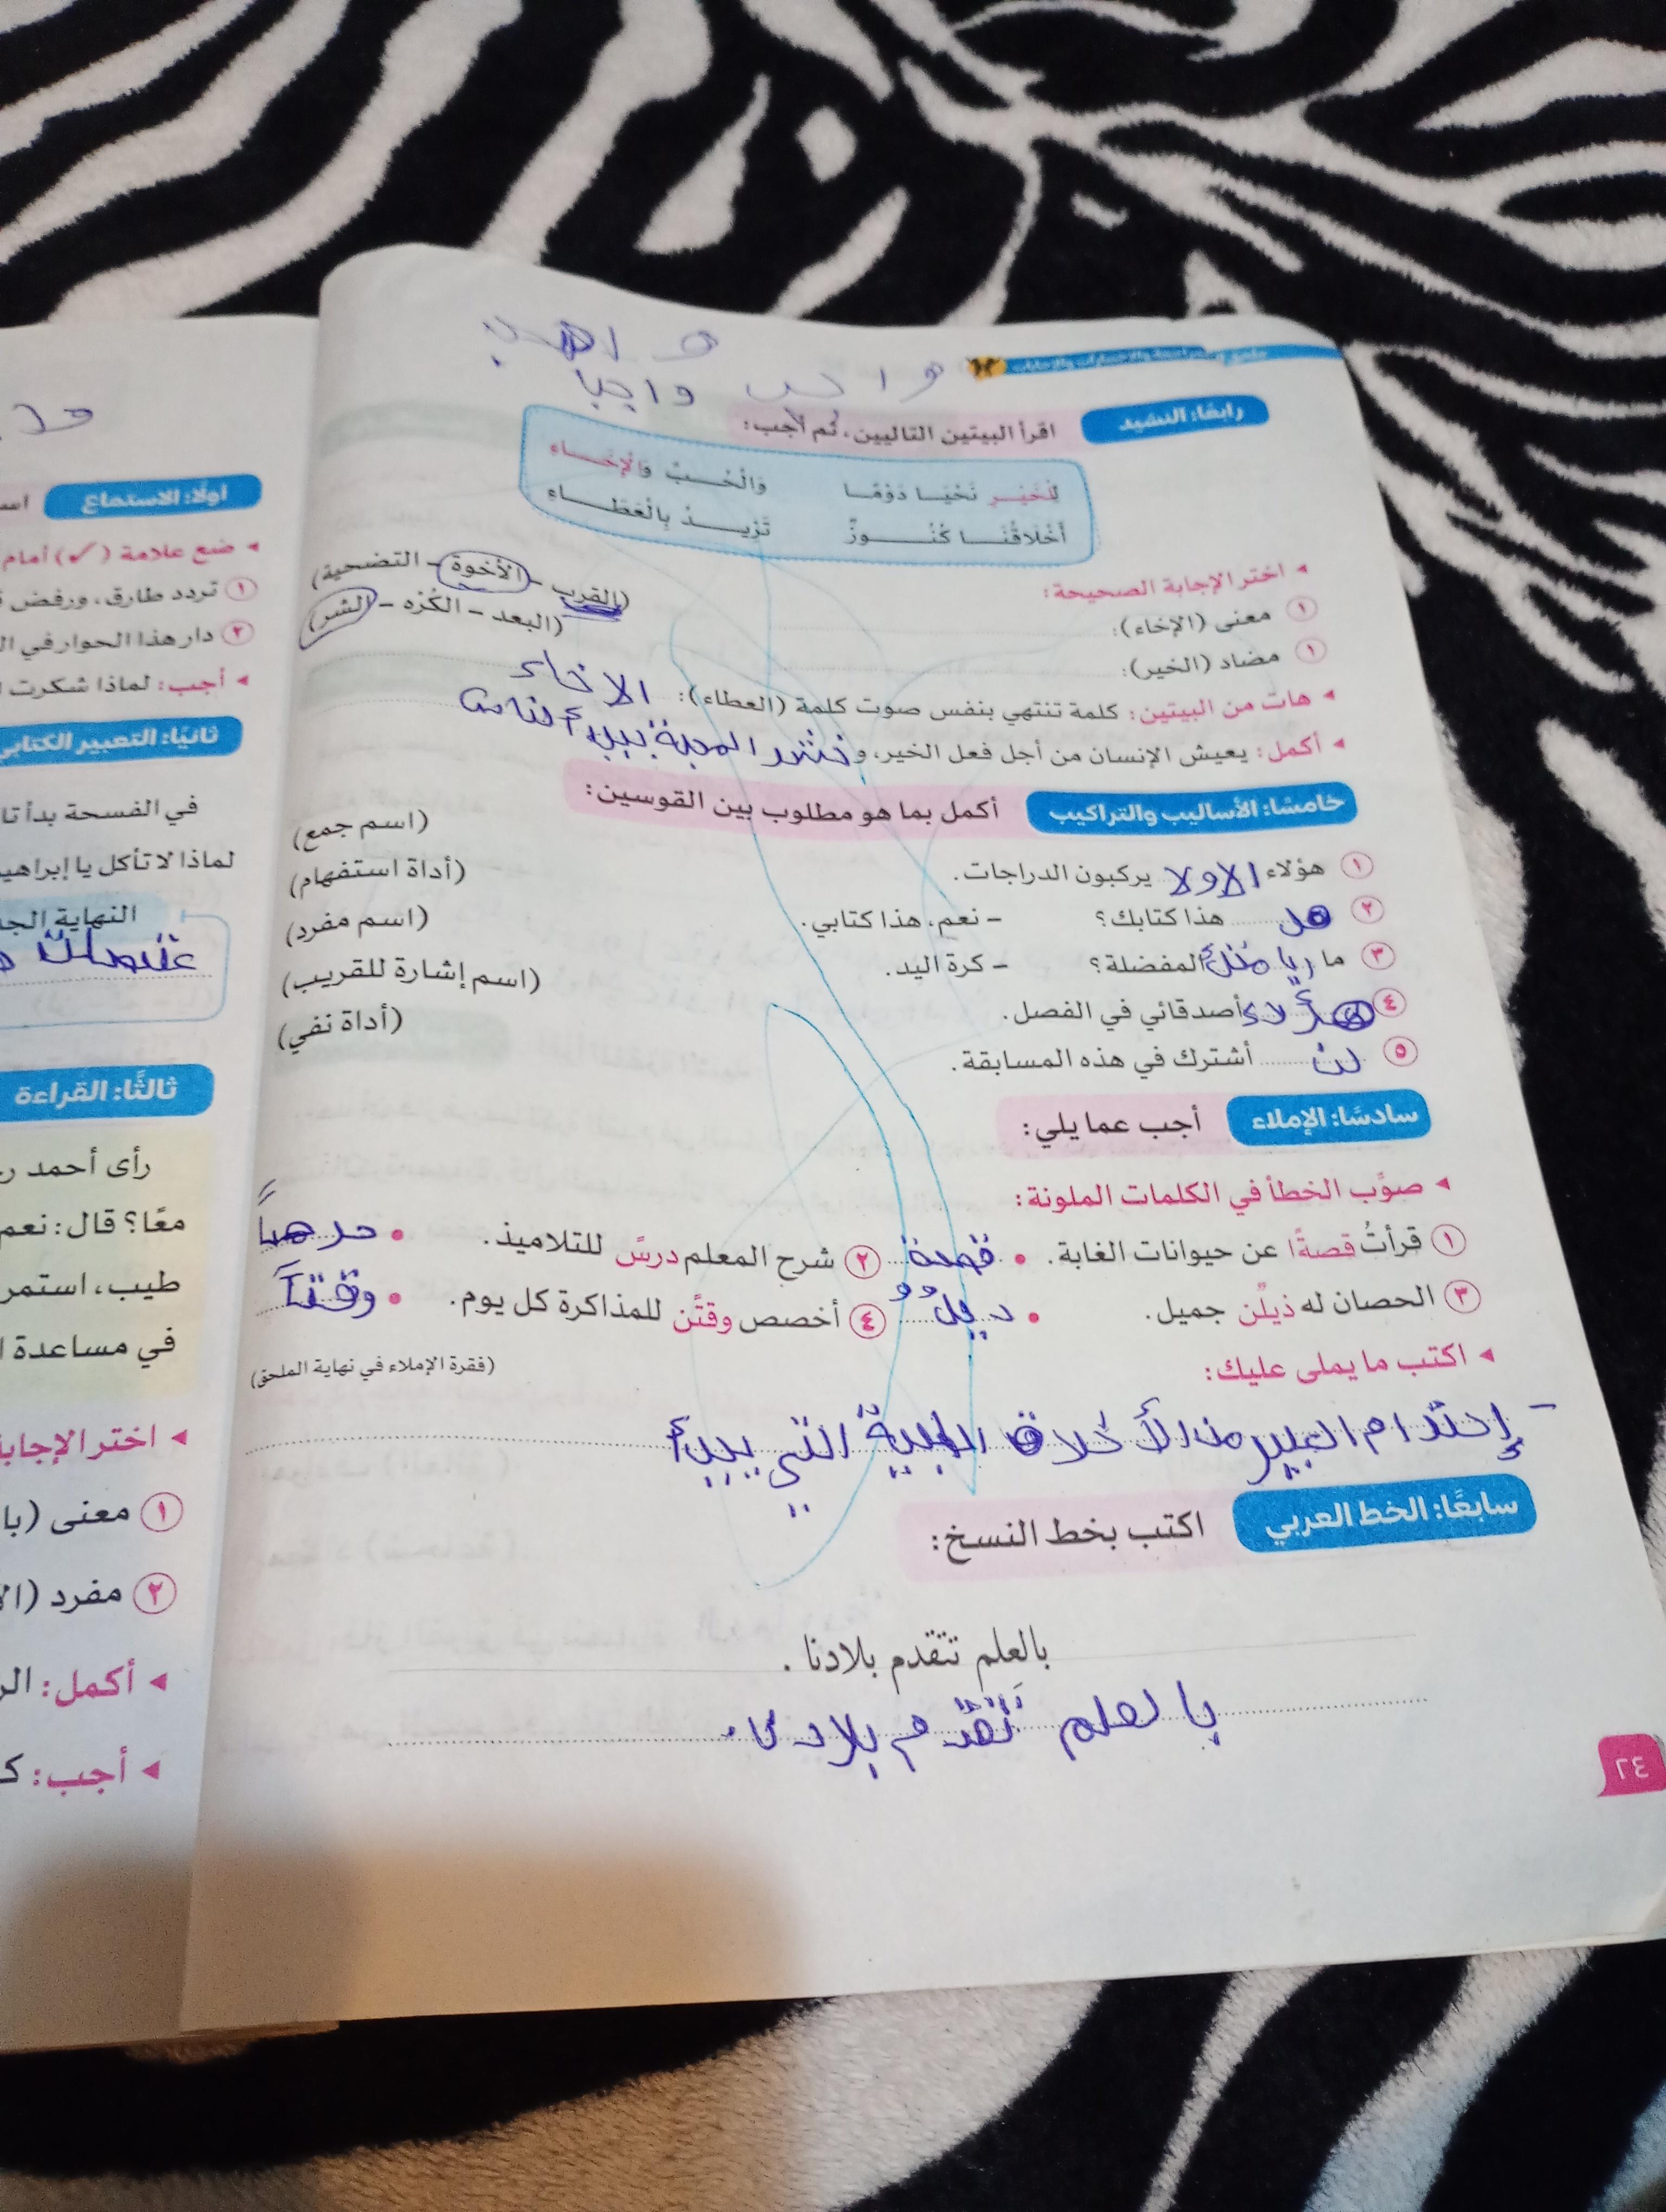 واجب
واجب واجبا
رابعًا: النشيد اقرأ البيتين التاليين، ثم أجب:
لِلْخَيْـرِ نَحْيَـا دَوْمًـا وَالْحُـــبِّ وَالْإِخَـــاءِ
أَخْلَاقُنَـــا كُنُـــــوزٌ تَزِيـــدُ بِالْعَطَـــاءِ
◂ اختر الإجابة الصحيحة:
١ معنى (الإخاء): (القرب - الأخوة - التضحية)
١ مضاد (الخير): (البعد - الكُرْه - الشر)
◂ هات من البيتين: كلمة تنتهي بنفس صوت كلمة (العطاء): الاخاء
◂ أكمل: يعيش الإنسان من أجل فعل الخير، و نشر المحبة بين الناس
خامسًا: الأساليب والتراكيب أكمل بما هو مطلوب بين القوسين:
١ هؤلاء الاولا يركبون الدراجات. (اسم جمع)
٢ هل هذا كتابك؟ - نعم، هذا كتابي. (أداة استفهام)
٣ ما المفضلة؟ - كرة اليد. (اسم مفرد)
٤ أصدقائي في الفصل. (اسم إشارة للقريب)
٥ لن أشترك في هذه المسابقة. (أداة نفي)
سادسًا: الإملاء أجب عما يلي:
◂ صوِّب الخطأ في الكلمات الملونة:
١ قرأتُ قصةًا عن حيوانات الغابة. • قصة ٢ شرح المعلم درسً للتلاميذ. •
٣ الحصان له ذيلٌن جميل. • ٤ أخصص وقتًن للمذاكرة كل يوم. • وقتاً
◂ اكتب ما يملى عليك: (فقرة الإملاء في نهاية الملحق)
- إحترام من الأخلاق الطيبة التي
سابعًا: الخط العربي اكتب بخط النسخ:
بالعلم تتقدم بلادنا .
بالعلم تتقدم بلادنا.
٤٢
أولًا: الاستماع
◂ ضع علامة (✓) أمام
١ تردد طارق، ورفض
٢ دار هذا الحوار في
◂ أجب: لماذا شكرت
ثانيًا: التعبير الكتابي
في الفسحة بدأ تا
لماذا لا تأكل يا إبراهيـ
النهاية الجد
ثالثًا: القراءة
رأى أحمد
معًا؟ قال: نعم
طيب، استمر
في مساعدة
◂ اختر الإجابة
١ معنى (با
٢ مفرد (الأ
◂ أكمل: الر
◂ أجب: كـ